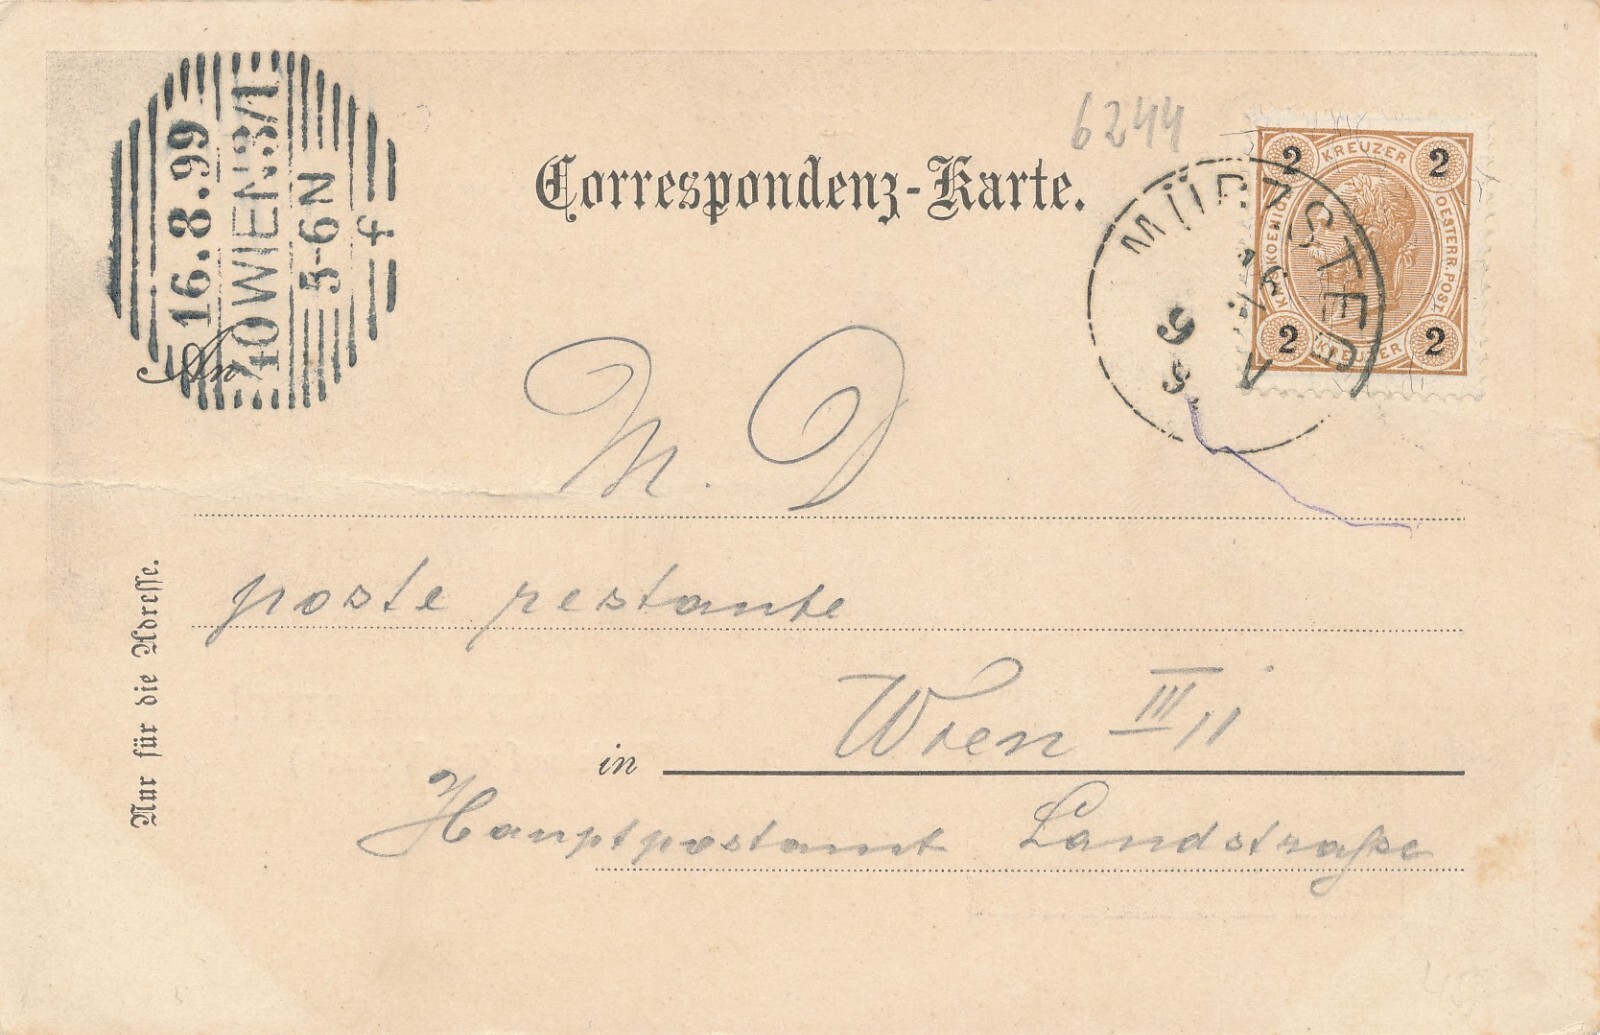 6244
Correspondenz-Karte.
16.8.99
40 WIEN 3/1
5-6N
f
MÜRZSTEG
2 KREUZER 2
OESTERR. POST
2 KREUZER 2
An
M. D
poste restante
in Wien III/1
Hauptpostamt Landstraße
Nur für die Adresse.